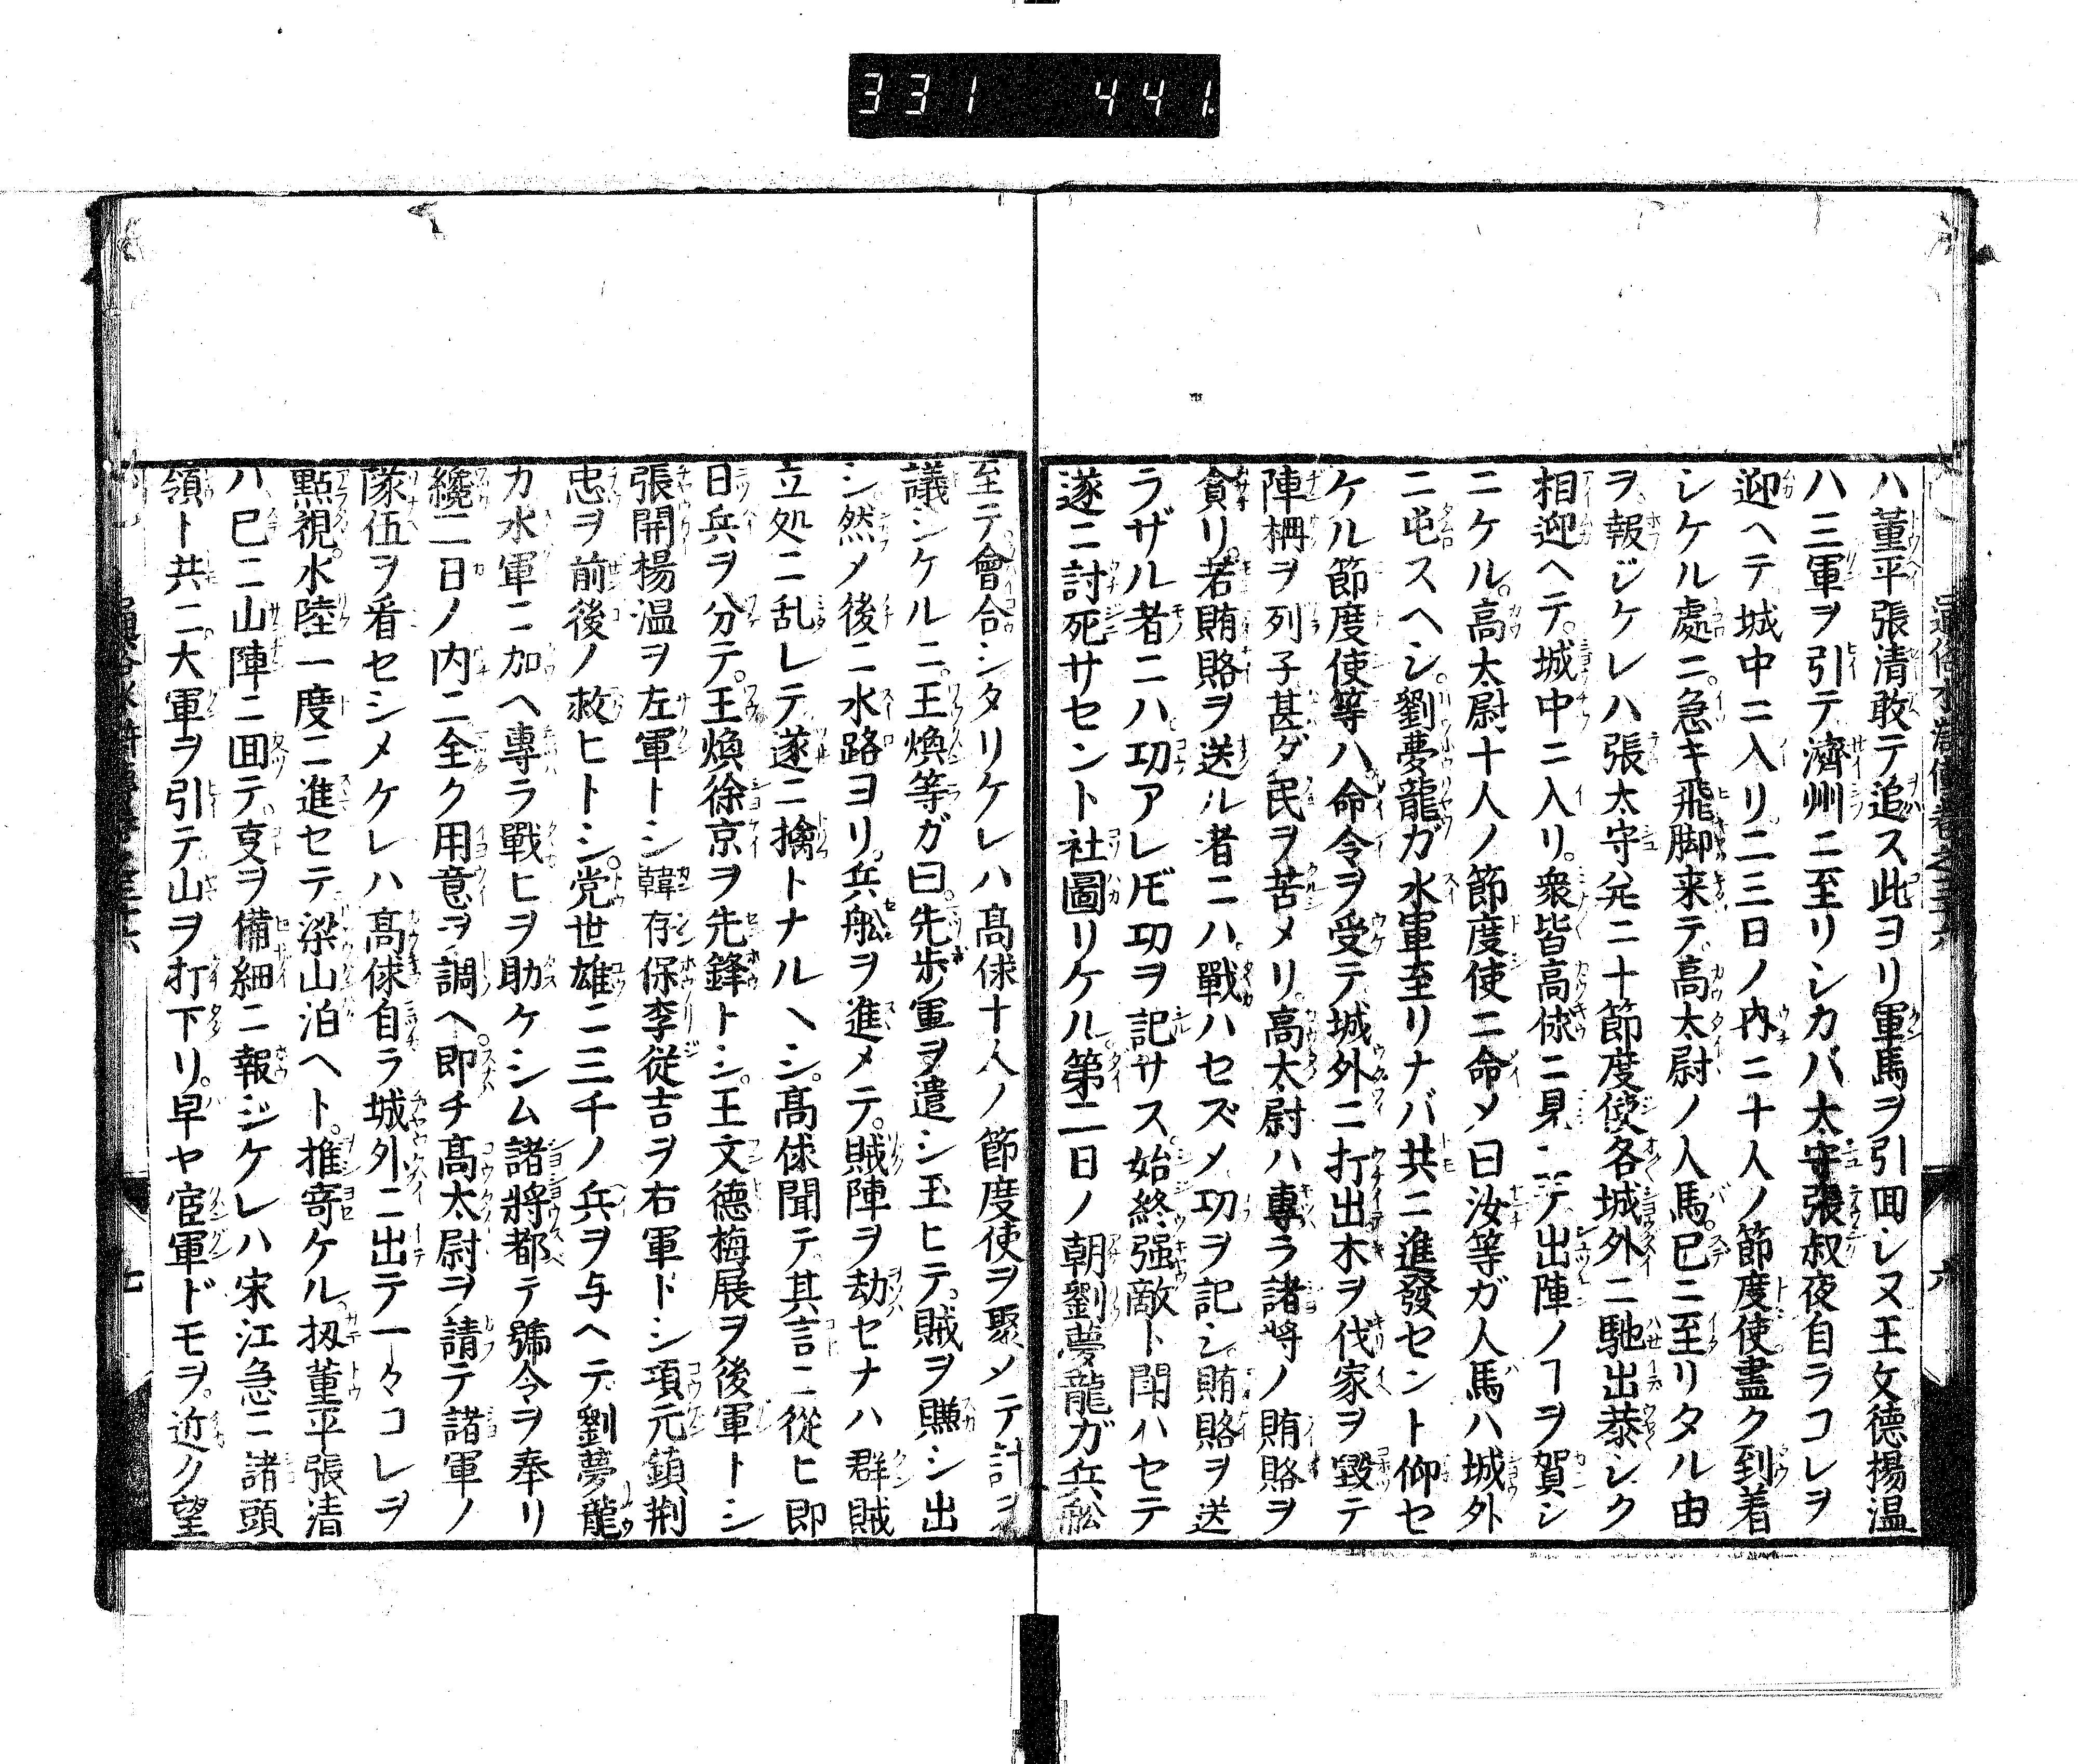 331 441
ハ董平張清敢テ追ス此ヨリ軍馬ヲ引回シヌ王文徳揚温
ハ三軍ヲ引テ濟州ニ至リシカバ太守張叔夜自ラコレヲ
迎ヘテ城中ニ入リ二三日ノ内ニ十人ノ節度使盡ク到着
シケル處ニ急キ飛脚来テ高太尉ノ人馬已ニ至リタル由
ヲ報ジケレハ張太守幷ニ十節度使各城外ニ馳出恭シク
相迎ヘテ城中ニ入リ衆皆高俅ニ見ニテ出陣ノヿヲ賀シ
ニケル高太尉十人ノ節度使ニ命メ曰汝等ガ人馬ハ城外
ニ屯スヘシ劉夢龍ガ水軍至リナバ共ニ進發セント仰セ
ケル節度使等ハ命令ヲ受テ城外ニ打出木ヲ伐家ヲ毀テ
陣柵ヲ列子甚ダ民ヲ苦メリ高太尉ハ專ラ諸將ノ賄賂ヲ
貪リ若賄賂ヲ送ル者ニハ戰ハセズメ功ヲ記シ賄賂ヲ送
ラザル者ニハ功アレ𪜈功ヲ記サス始終强敵ト閗ハセテ
遂ニ討死サセント社圖リケル第二日ノ朝劉夢龍ガ兵舩
至テ會合シタリケレハ髙俅十人ノ節度使ヲ聚メテ計ヲ
議シケルニ王煥等ガ曰先歩軍ヲ遣シ玉ヒテ賊ヲ賺シ出
シ然メ後ニ水路ヨリ兵舩ヲ進メテ賊陣ヲ劫セナハ群賊
立処ニ乱レテ遂ニ擒トナルヘシ髙俅聞テ其言ニ從ヒ即
日兵ヲ分テ王煥徐京ヲ先鋒トシ王文德梅展ヲ後軍トシ
張開楊温ヲ左軍トシ韓存保李從吉ヲ右軍トシ項元鎮荆
忠ヲ前後ノ救ヒトシ党世雄ニ三千ノ兵ヲ与ヘテ劉夢龍
カ水軍ニ加ヘ專ラ戰ヒヲ助ケシム諸將都テ號令ヲ奉リ
纔二日ノ内ニ全ク用意ヲ調ヘ即チ髙太尉ヲ請テ諸軍ノ
隊伍ヲ看セシメケレハ髙俅自ラ城外ニ出テ一々コレヲ
㸃視水陸一度ニ進セテ梁山泊ヘト推寄ケル扨董平張清
ハ已ニ山陣ニ回テ叓ヲ備細ニ報ジケレハ宋江急ニ諸頭
領ト共ニ大軍ヲ引テ山ヲ打下リ早ヤ宦軍ドモヲ近ク望